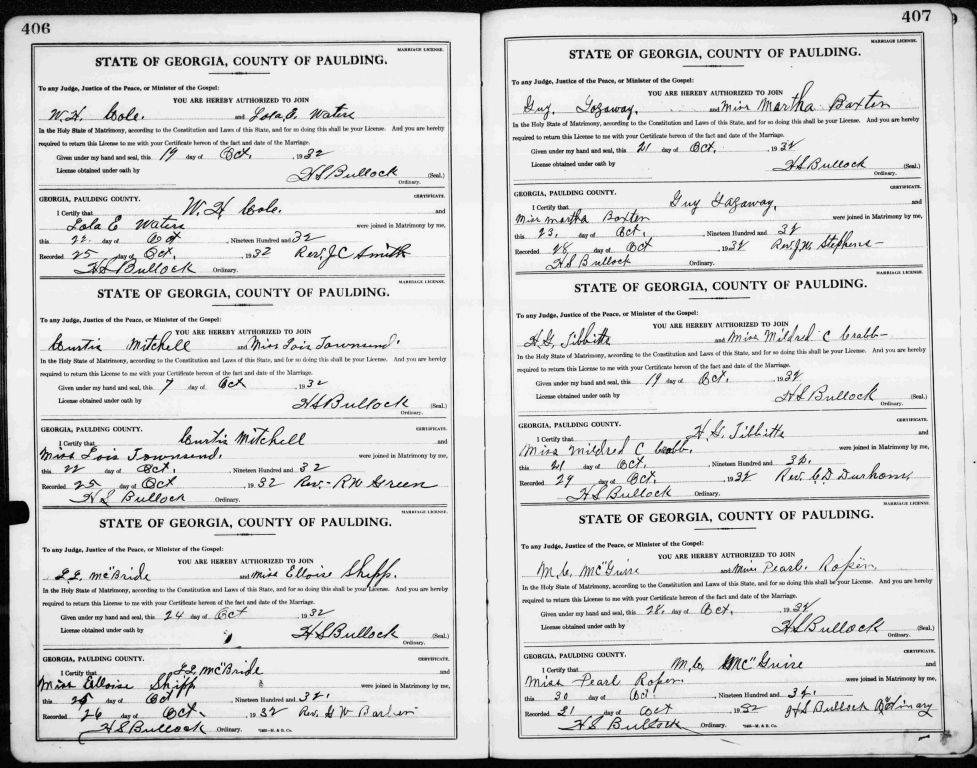 406
MARRIAGE LICENSE.
STATE OF GEORGIA, COUNTY OF PAULDING.
To any Judge, Justice of the Peace, or Minister of the Gospel:
YOU ARE HEREBY AUTHORIZED TO JOIN
W. H. Cole. and Lola E. Waters
In the Holy State of Matrimony, according to the Constitution and Laws of this State, and for so doing this shall be your License. And you are hereby
required to return this License to me with your Certificate hereon of the fact and date of the Marriage.
Given under my hand and seal, this 19 day of Oct. , 1932
License obtained under oath by H S Bullock (Seal.)
Ordinary.
GEORGIA, PAULDING COUNTY. CERTIFICATE.
I Certify that W. H. Cole. and
Lola E Waters were joined in Matrimony by me,
this 22. day of Oct , Nineteen Hundred and 32
Recorded 25 day of Oct. , 1932 Rev. J C Smith
H S Bullock Ordinary.
MARRIAGE LICENSE.
STATE OF GEORGIA, COUNTY OF PAULDING.
To any Judge, Justice of the Peace, or Minister of the Gospel:
YOU ARE HEREBY AUTHORIZED TO JOIN
Curtis Mitchell and Miss Lois Townsend.
In the Holy State of Matrimony, according to the Constitution and Laws of this State, and for so doing this shall be your License. And you are hereby
required to return this License to me with your Certificate hereon of the fact and date of the Marriage.
Given under my hand and seal, this 7 day of Oct , 1932
License obtained under oath by H S Bullock (Seal.)
Ordinary.
GEORGIA, PAULDING COUNTY. CERTIFICATE.
I Certify that Curtis Mitchell and
Miss Lois Townsend. were joined in Matrimony by me,
this 22 day of Oct. , Nineteen Hundred and 32
Recorded 25 day of Oct , 1932 Rev.- R W Green
H S Bullock Ordinary.
MARRIAGE LICENSE.
STATE OF GEORGIA, COUNTY OF PAULDING.
To any Judge, Justice of the Peace, or Minister of the Gospel:
YOU ARE HEREBY AUTHORIZED TO JOIN
McBride and Miss Elloise Shipp.
In the Holy State of Matrimony, according to the Constitution and Laws of this State, and for so doing this shall be your License. And you are hereby
required to return this License to me with your Certificate hereon of the fact and date of the Marriage.
Given under my hand and seal, this 24 day of Oct , 1932
License obtained under oath by H S Bullock (Seal.)
Ordinary.
GEORGIA, PAULDING COUNTY. CERTIFICATE.
I Certify that McBride and
Miss Elloise Shipp were joined in Matrimony by me,
this 25 day of Oct , Nineteen Hundred and 32.
Recorded 26 day of Oct. , 1932 Rev. G W
H S Bullock Ordinary.
407
MARRIAGE LICENSE.
STATE OF GEORGIA, COUNTY OF PAULDING.
To any Judge, Justice of the Peace, or Minister of the Gospel:
YOU ARE HEREBY AUTHORIZED TO JOIN
Guy. Gazaway. and Miss Martha Baxter
In the Holy State of Matrimony, according to the Constitution and Laws of this State, and for so doing this shall be your License. And you are hereby
required to return this License to me with your Certificate hereon of the fact and date of the Marriage.
Given under my hand and seal, this 21 day of Oct. , 1932
License obtained under oath by H S Bullock (Seal.)
Ordinary.
GEORGIA, PAULDING COUNTY. CERTIFICATE.
I Certify that Guy Gazaway. and
Miss Martha Baxter were joined in Matrimony by me,
this 23. day of Oct. , Nineteen Hundred and 32
Recorded 28. day of Oct , 1932 Rev. J.W. Stephens
H S Bullock Ordinary.
MARRIAGE LICENSE.
STATE OF GEORGIA, COUNTY OF PAULDING.
To any Judge, Justice of the Peace, or Minister of the Gospel:
YOU ARE HEREBY AUTHORIZED TO JOIN
H. G. Tibbitts and Miss Mildred C Crabb
In the Holy State of Matrimony, according to the Constitution and Laws of this State, and for so doing this shall be your License. And you are hereby
required to return this License to me with your Certificate hereon of the fact and date of the Marriage.
Given under my hand and seal, this 19 day of Oct. , 1932
License obtained under oath by H S Bullock (Seal.)
Ordinary.
GEORGIA, PAULDING COUNTY. CERTIFICATE.
I Certify that H. G. Tibbitts and
Miss Mildred C Crabb. were joined in Matrimony by me,
this 21 day of Oct. , Nineteen Hundred and 32.
Recorded 29 day of Oct. , 1932 Rev. C D Durham
H S Bullock Ordinary.
MARRIAGE LICENSE.
STATE OF GEORGIA, COUNTY OF PAULDING.
To any Judge, Justice of the Peace, or Minister of the Gospel:
YOU ARE HEREBY AUTHORIZED TO JOIN
M. C. McGuire and Miss Pearl. Roper
In the Holy State of Matrimony, according to the Constitution and Laws of this State, and for so doing this shall be your License. And you are hereby
required to return this License to me with your Certificate hereon of the fact and date of the Marriage.
Given under my hand and seal, this 28. day of Oct. , 1932
License obtained under oath by H S Bullock (Seal.)
Ordinary.
GEORGIA, PAULDING COUNTY. CERTIFICATE.
I Certify that M. C. McGuire and
Miss Pearl Roper. were joined in Matrimony by me,
this 30 day of Oct , Nineteen Hundred and 32.
Recorded 31 day of Oct , 1932 H S Bullock Ordinary
H S Bullock Ordinary.